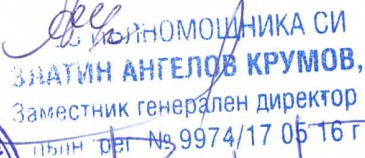 ПЪЛНОМОЩНИКА СИ
ЗЛАТИН АНГЕЛОВ КРУМОВ,
Заместник генерален директор
пълн рег № 9974/17 05 16 г